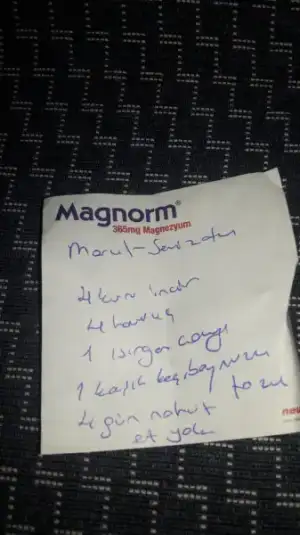 Magnorm®
365mg Magnezyum
Marul -
4 kuru incir
4 havuç
1 ısırgan
1 kaşık keçiboynuzu
tozu
4 gün nohut
et yok